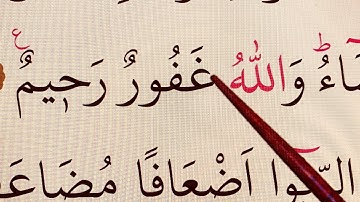 ـَٓاءُ ۜ وَاللّٰهُ غَفُورٌ رَحٖيمٌ ع
الرِّبٰٓوا اَضْعَافًا مُضَاعَفَ